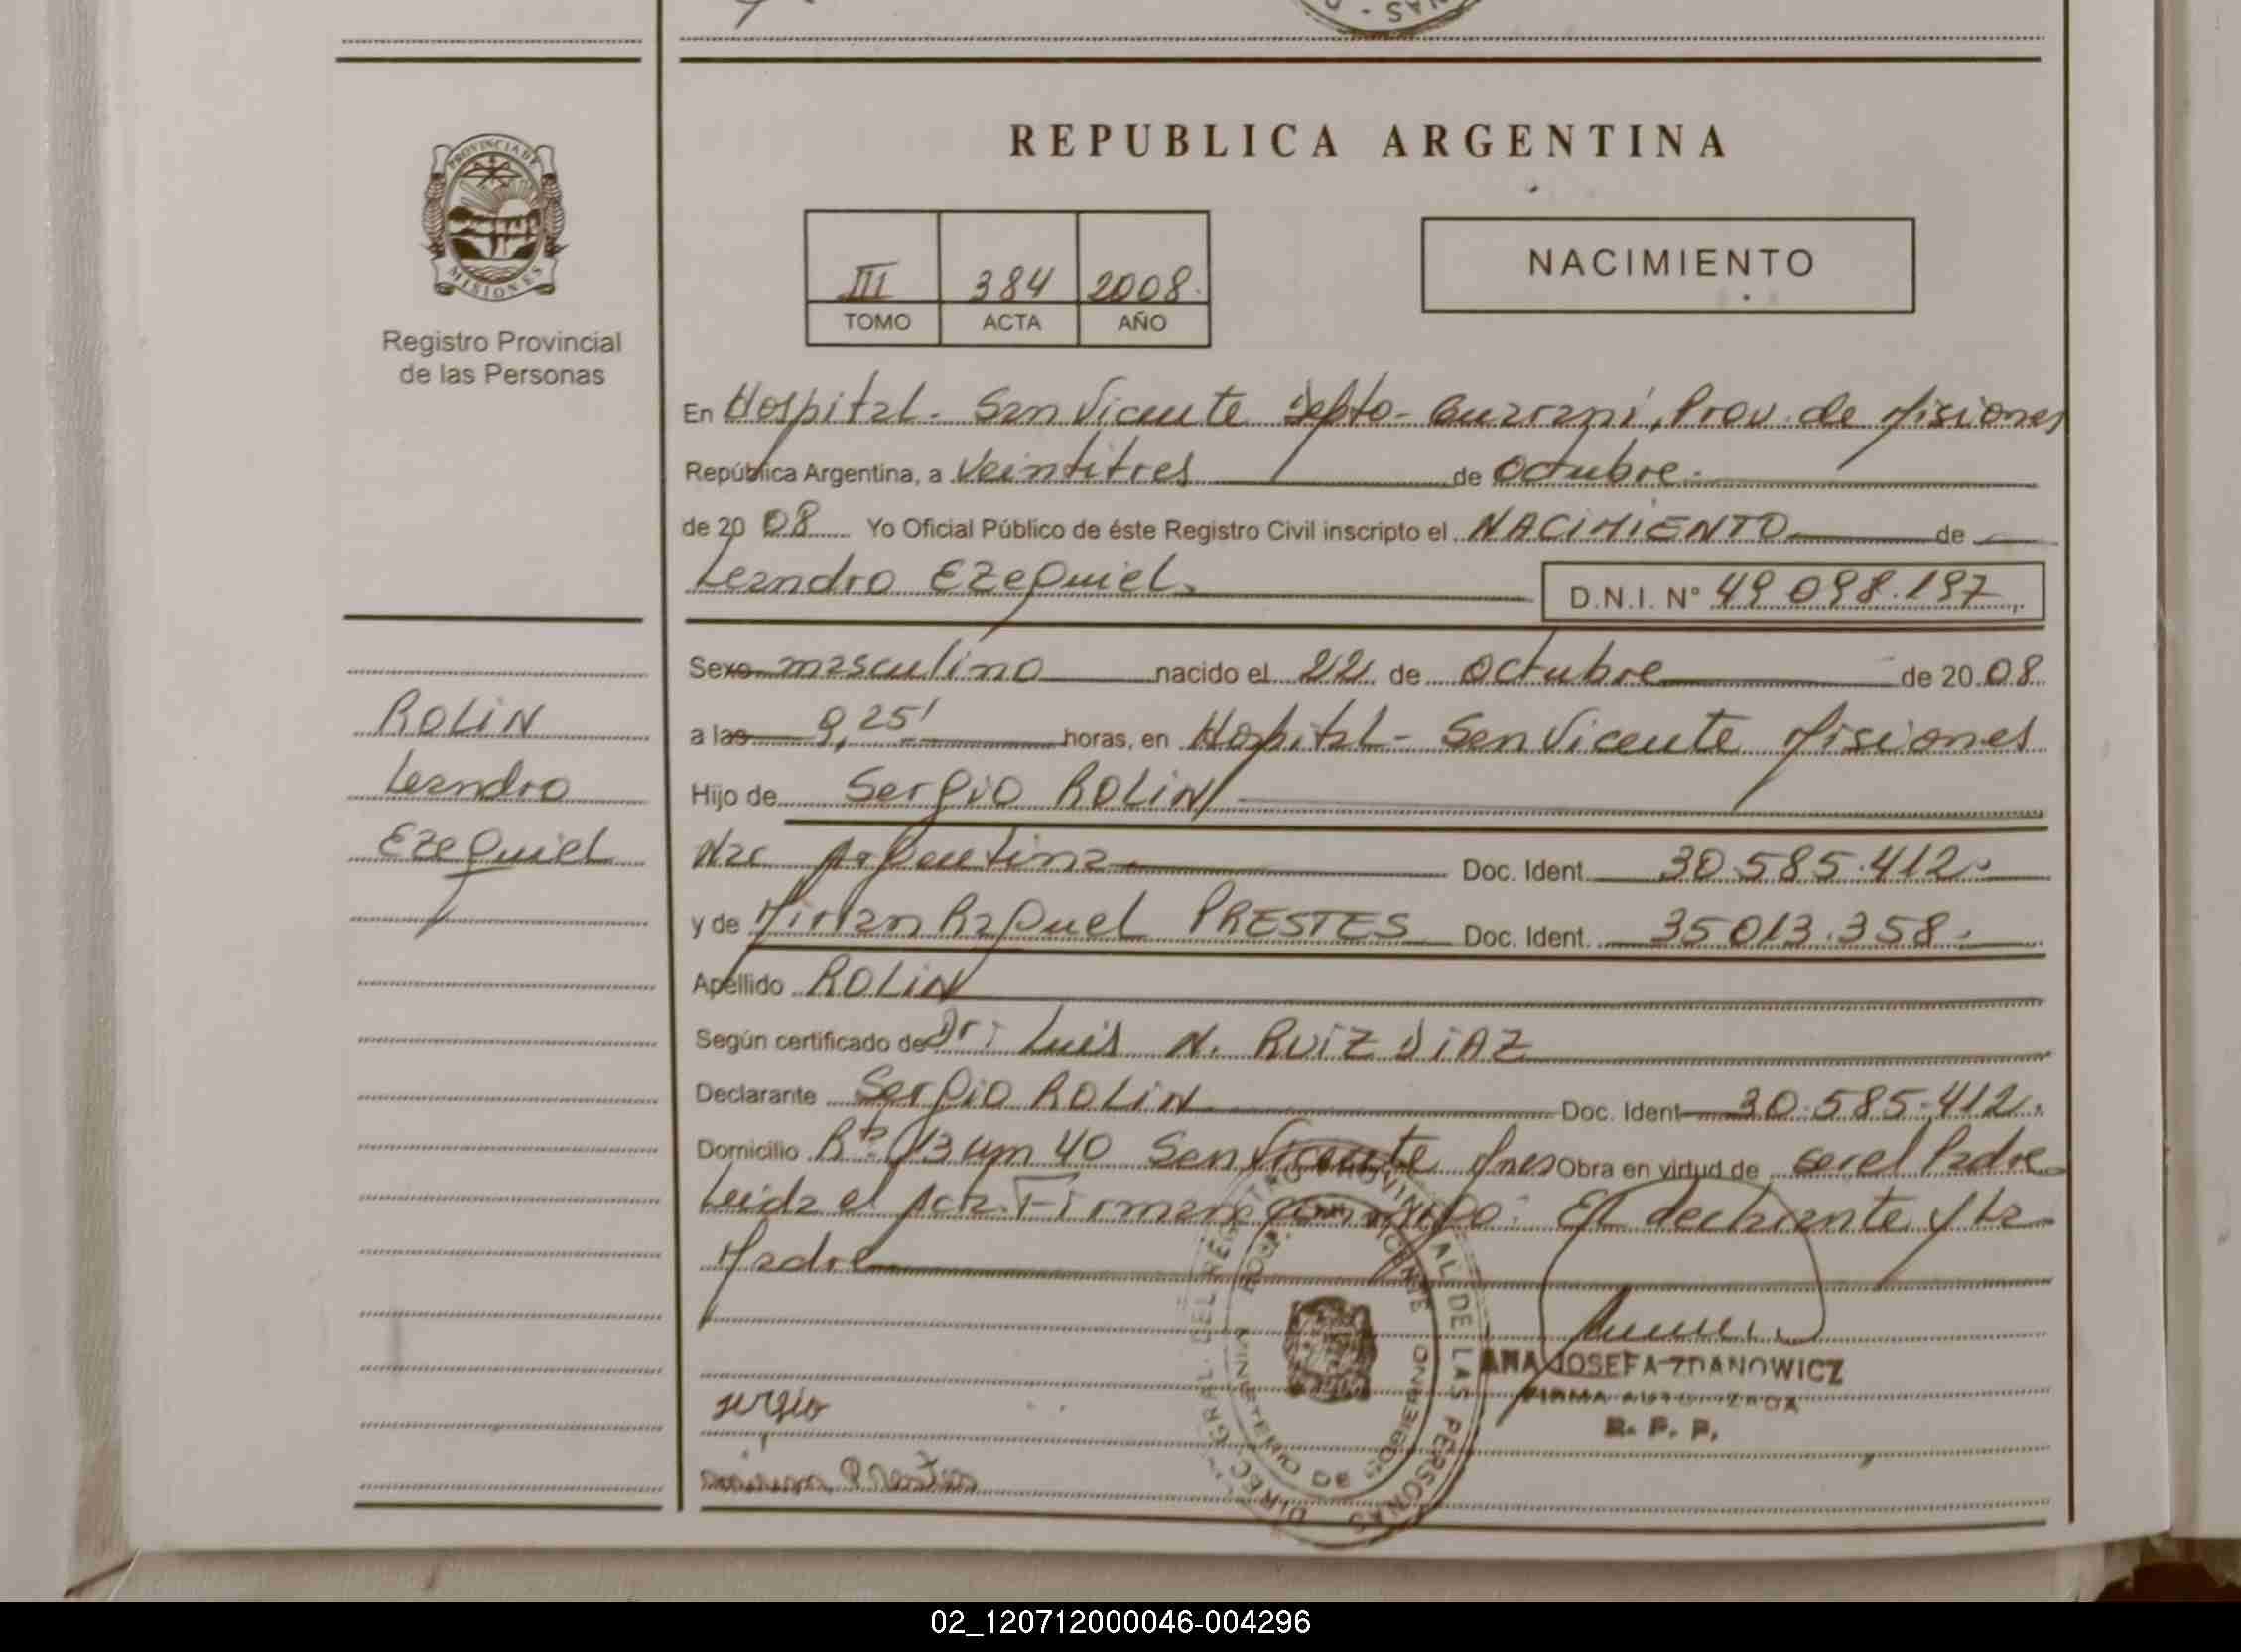 REPUBLICA ARGENTINA
PROVINCIA DE MISIONES
Registro Provincial
de las Personas
III 384 2008
TOMO ACTA AÑO
NACIMIENTO
En Hospital - San Vicente Depto - Guarani, Prov. de Misiones
República Argentina, a Veintitres de Octubre.
de 20 08 Yo Oficial Público de éste Registro Civil inscripto el NACIMIENTO de
Leandro Ezequiel
D.N.I. N° 49 098.197
Sexo masculino nacido el 22 de Octubre de 20 08
a las 9,25' horas, en Hospital - San Vicente Misiones
Hijo de Sergio ROLIN
Nac Argentina Doc. Ident. 30.585.412
y de Mirian Raquel PRESTES Doc. Ident. 35013.358.
Apellido ROLIN
Según certificado de Dr: Luis N. RUIZ DIAZ
Declarante Sergio ROLIN Doc. Ident 30.585.412.
Domicilio 13 km 40 San Vicente Mnes Obra en virtud de ser el Padre
Leida el Acta. Firman conmigo: El declarante y La
Madre
ROLIN
Leandro
Ezequiel
sergio
Prestes
DIREC. GRAL. DEL REGISTRO PROVINCIAL DE LAS PERSONAS
ANA JOSEFA ZDANOWICZ
FIRMA AUTORIZADA
R. P. P.
02_120712000046-004296